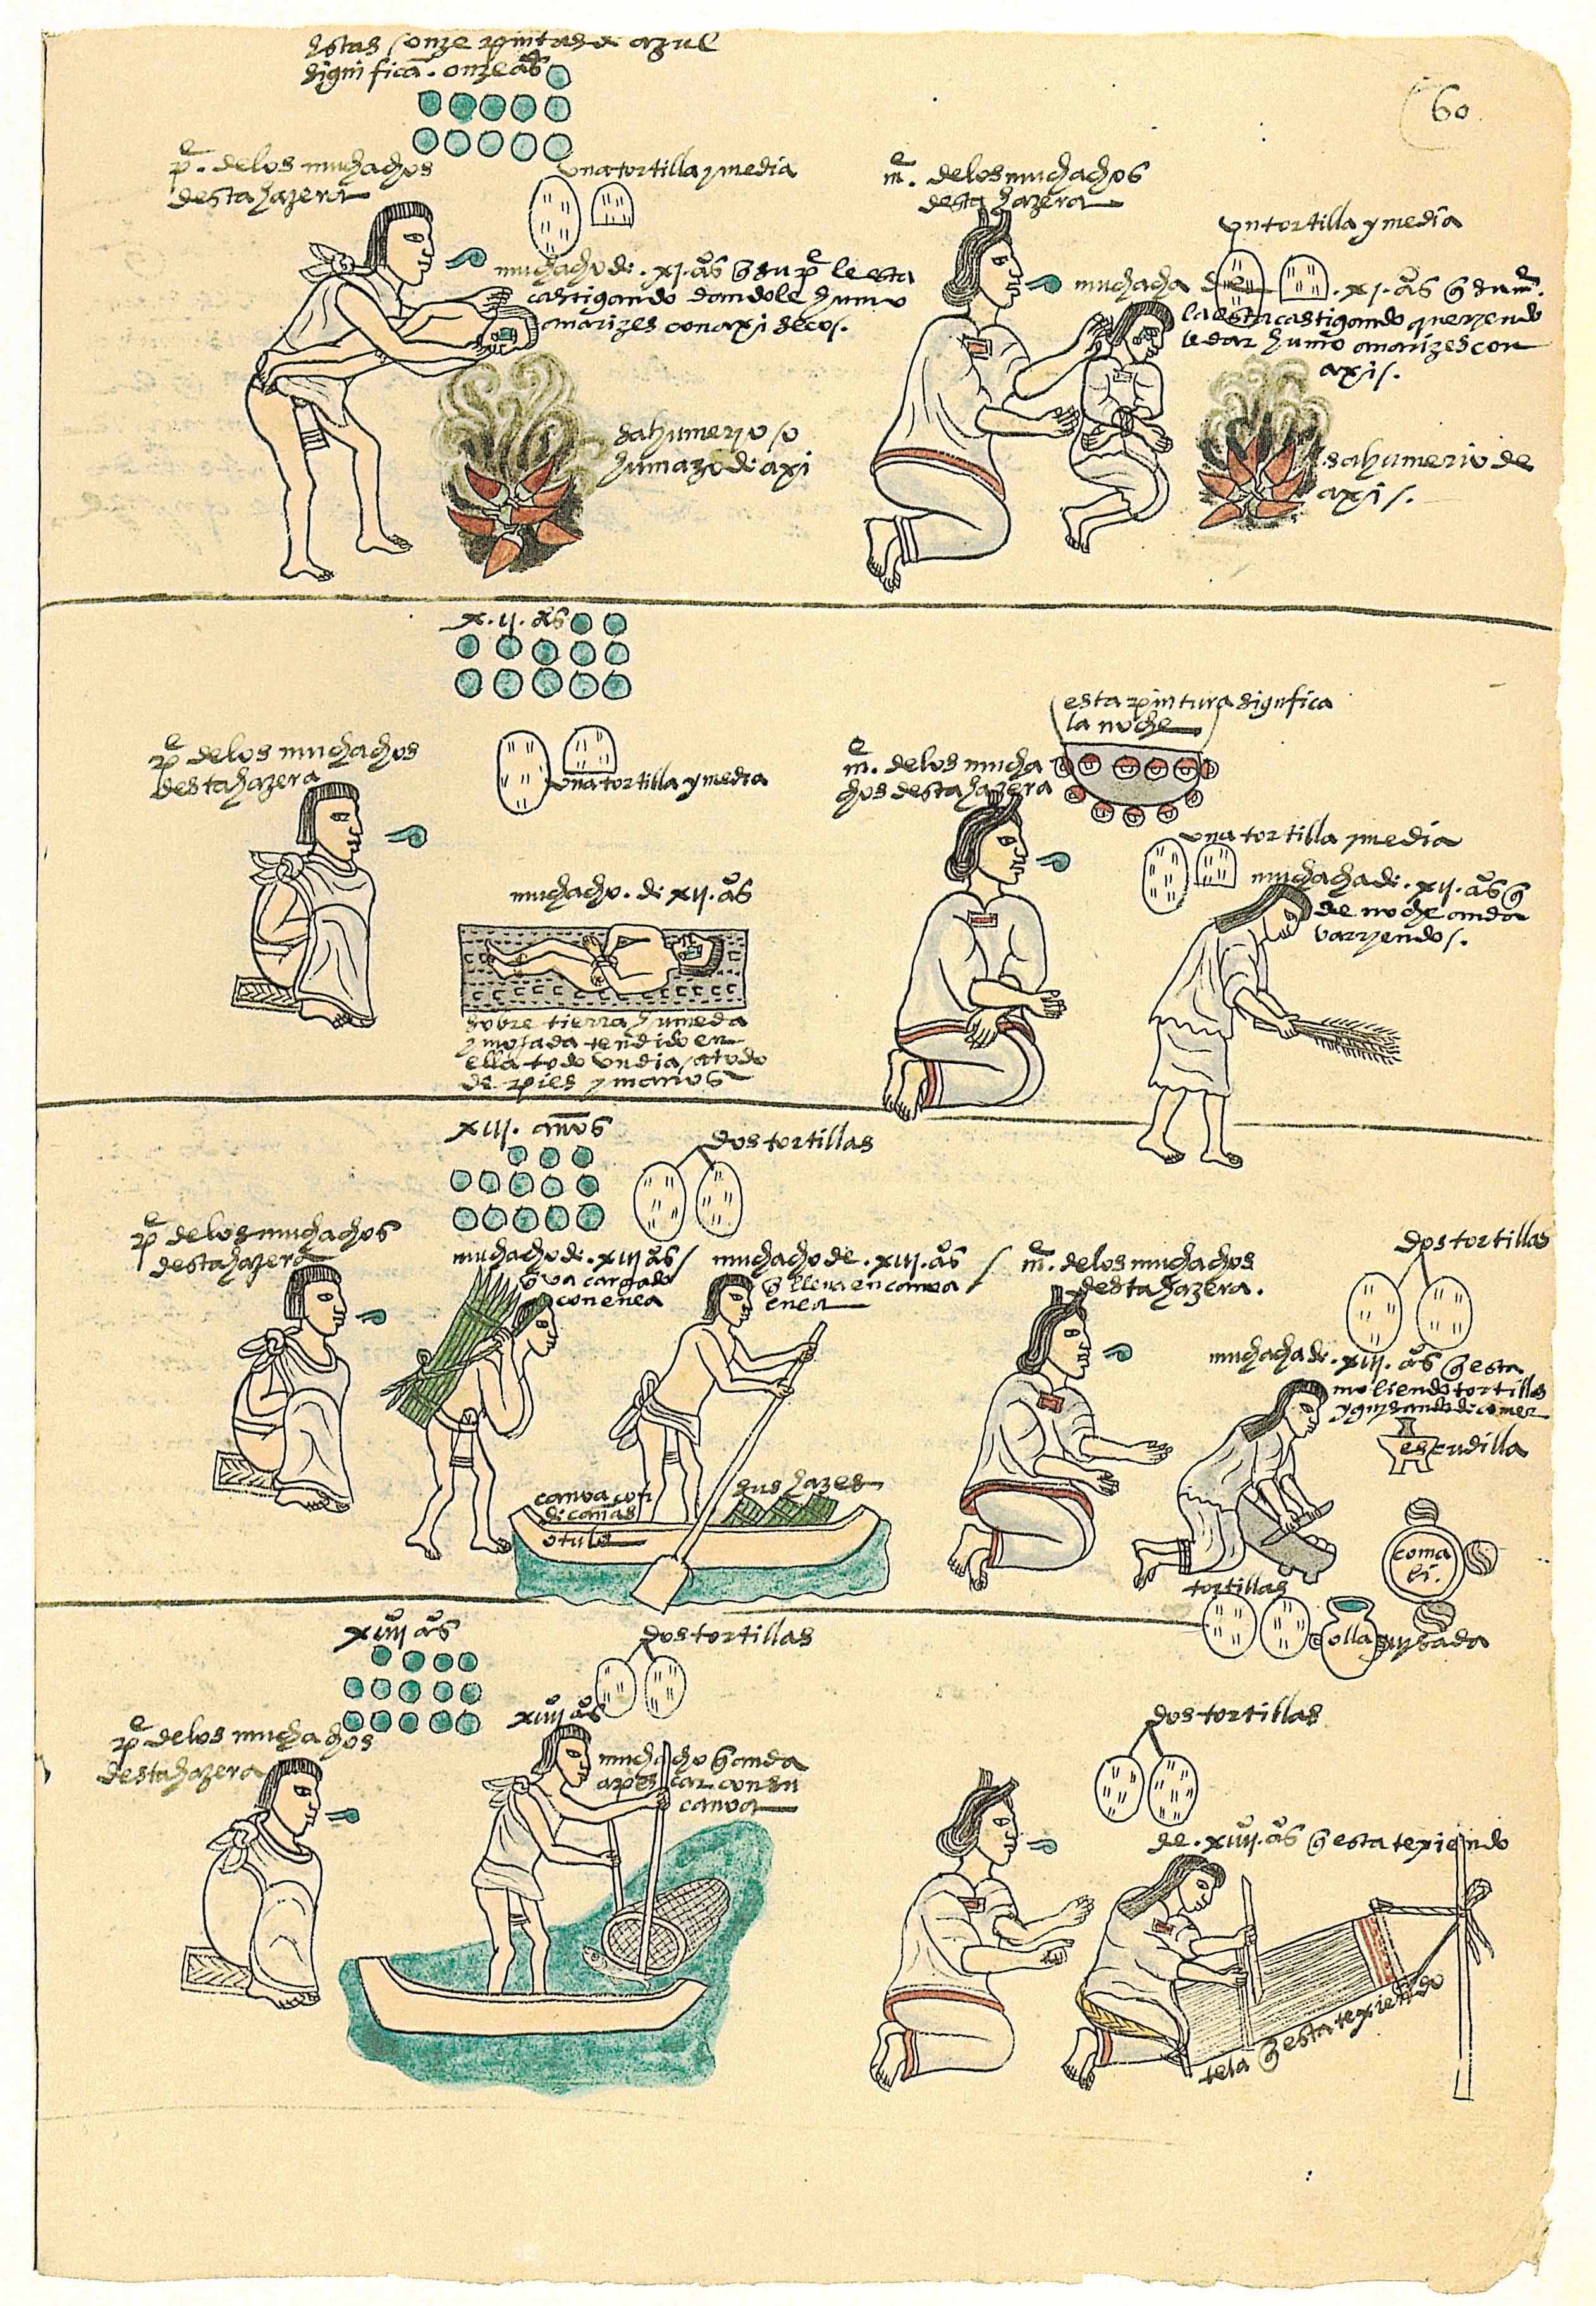 estas onze pintas de azul
significā. onze aºs
60
pᵉ. delos muchachos
desta hazera
una tortilla y media
muchacho de. xj. aºs q̄ su pᵉ le esta
castigando dandole humo
a narizes con axi secos.
sahumerio / o
humazo de axi
mᵉ. delos muchachos
desta hazera
un tortilla y media
muchacha de . xj. aºs q̄ su mᵉ.
la esta castigando queriendo
le dar humo a narizes con
axi/.
sahumerio de
axi/.
x.ij. aºs
pᵉ delos muchachos
desta hazera
una tortilla y media
muchacho. de xij. aºs
sobre tierra humeda
y mojada tendido en
ella todo un dia / atado
de pies y manos
esta pintura significa
la noche
mᵉ. delos mucha
chos desta hazera
una tortilla y media
muchacha de. xij. aºs q̄
de noche anda
varriendo/.
xiij. años
dos tortillas
pᵉ delos muchachos
desta hazera
muchacho de. xiij aºs /
q̄ va cargado
con enea
muchacho de. xiij. aºs /
q̄ lleva en canoa
enea
canoa con
de cañas
o tule
sus hazes
mᵉ. delos muchachos
desta hazera.
dos tortillas
muchacha de. xiij. aºs q̄ esta
moliendo tortillas
y guisando de comer
escudilla
coma
li.
tortillas
olla guisada
xiiij aºs
dos tortillas
pᵉ delos muchachos
desta hazera
xiiij aºs
muchacho q̄ anda
a pescar con su
canoa
dos tortillas
de. xiiij. aºs q̄ esta texiendo
tela q̄ esta texiendo